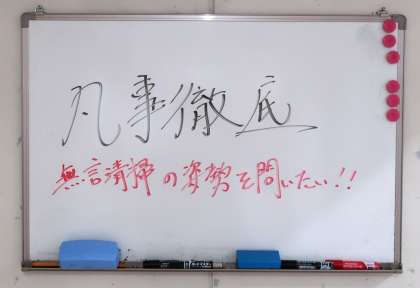 凡事徹底
無言清掃の姿勢を問いたい!!